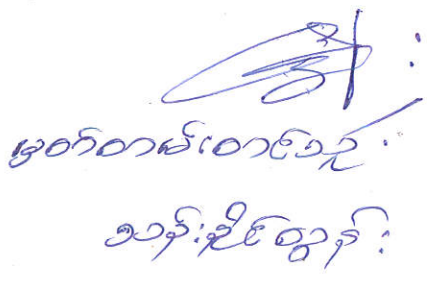 မှတ်တမ်းတင်သူ
သန်းနိုင်ထွန်း